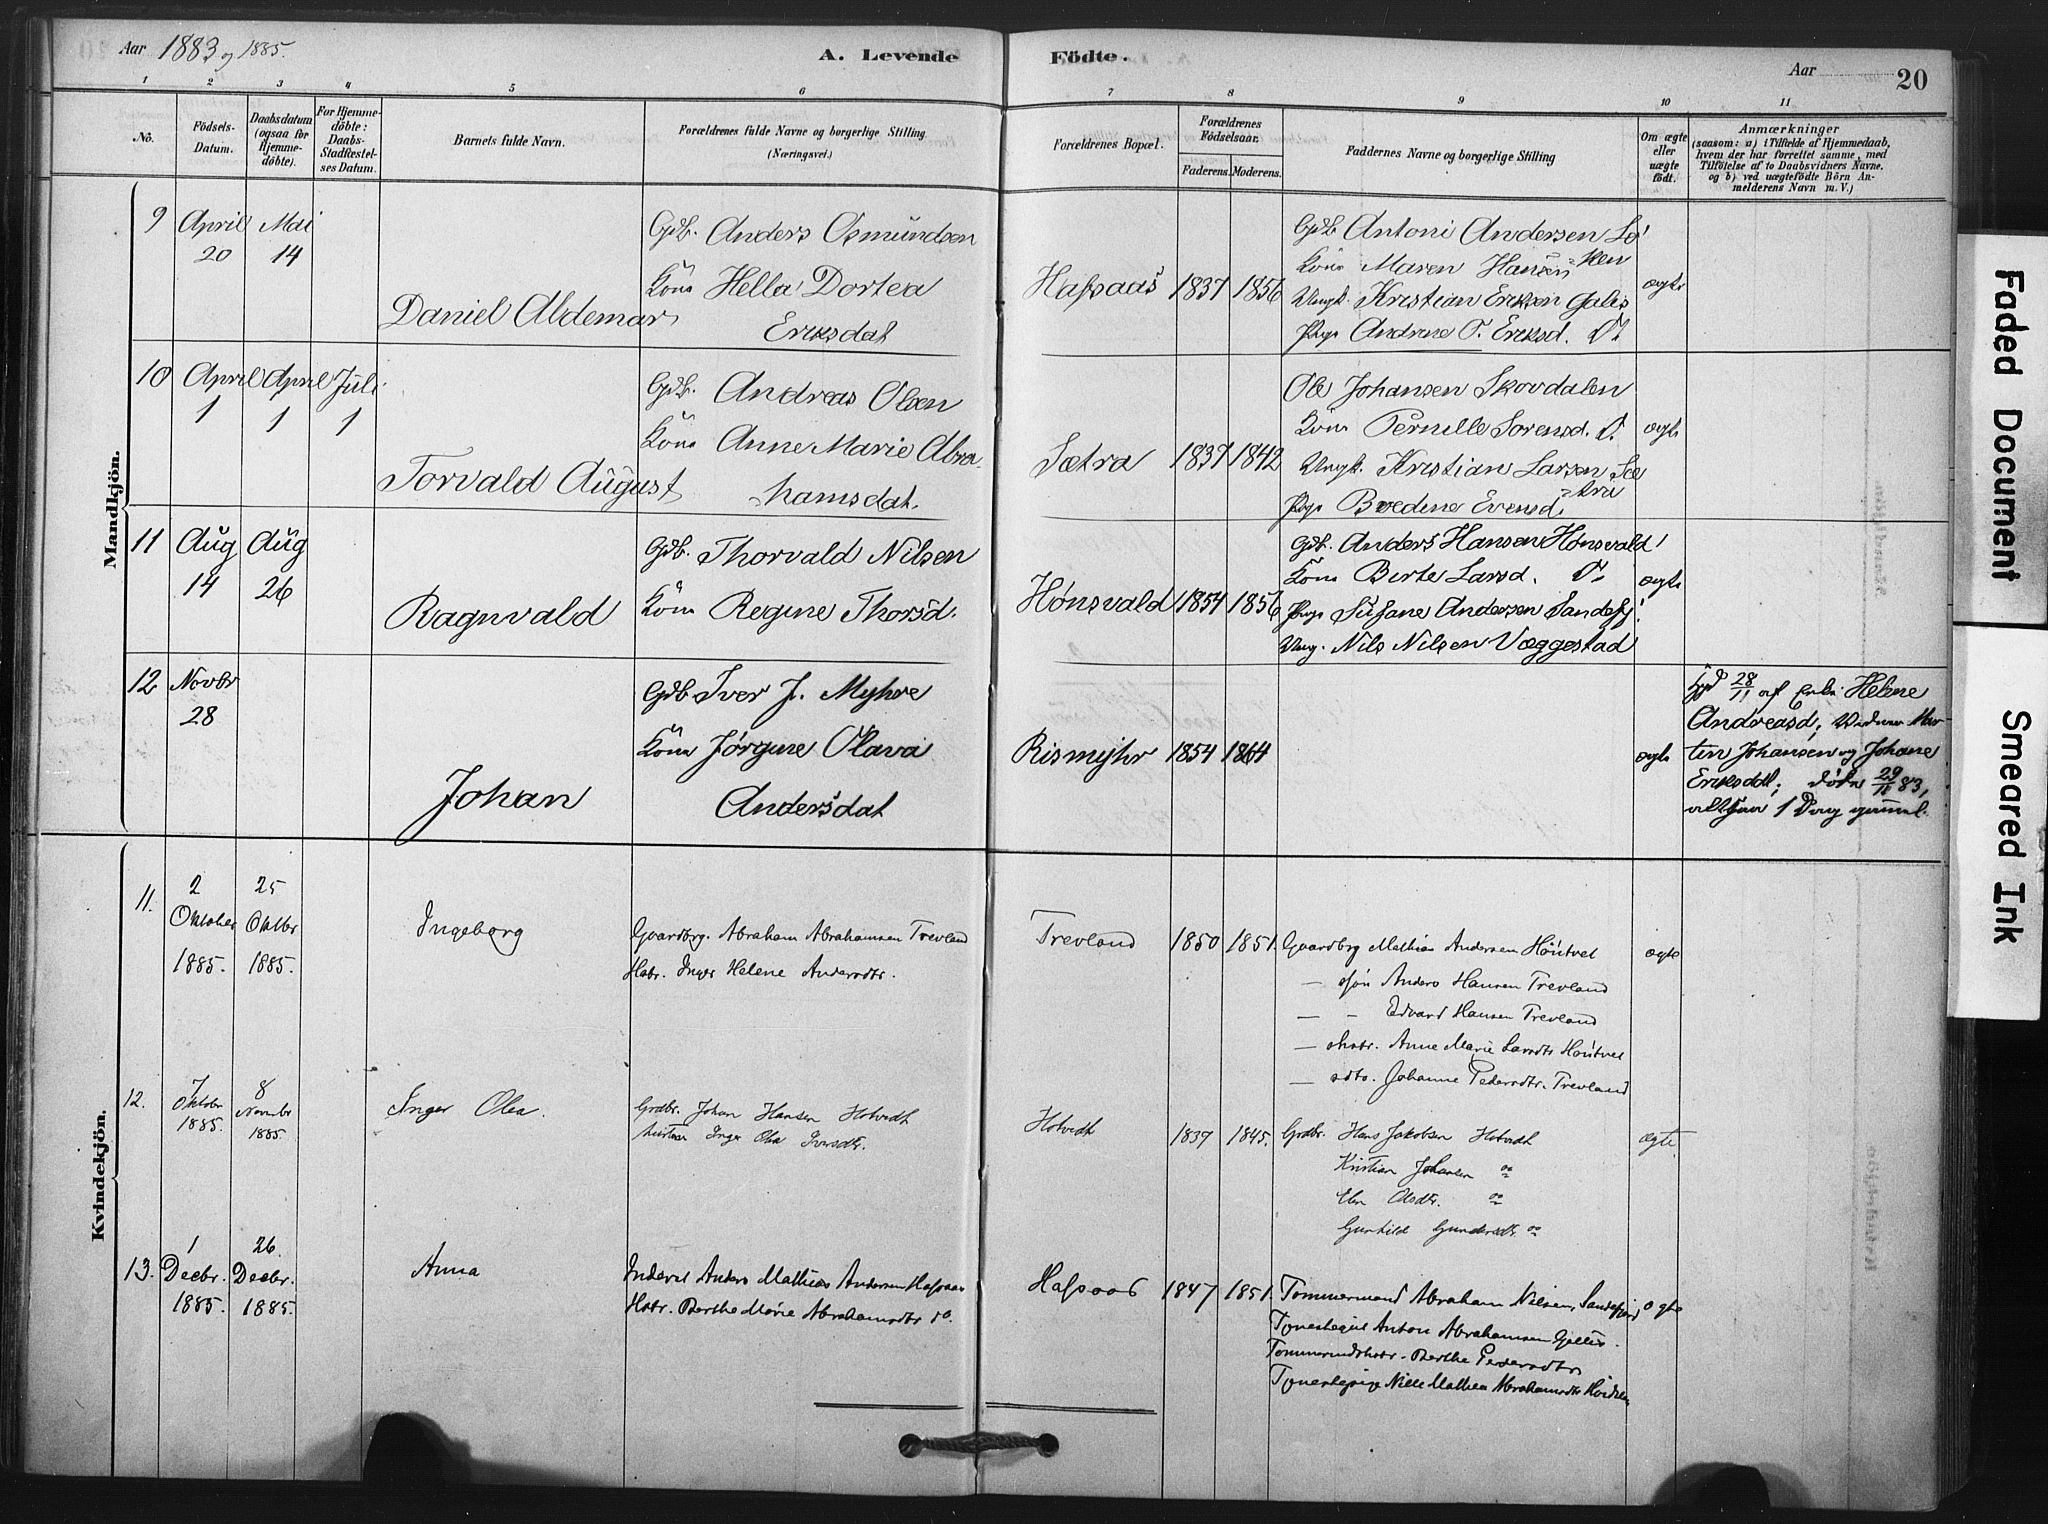 Aar 1883 og 1885.
A. Levende
Födte.
Aar
20
1 2 3 4 5 6 7 8 9 10 11
No.
Födsels-
Datum.
Daabsdatum
(ogsaa for
Hjemme-
döbte).
For Hjemme-
döbte:
Daabs-
Stadfæstel-
ses Datum.
Barnets fulde Navn.
Forældrenes fulde Navne og borgerlige Stilling
(Næringsvei.)
Forældrenes Bopæl.
Forældrenes
Födselsaar.
Faderens. Moderens.
Faddernes Navne og borgerlige Stilling
Om ægte
eller
uægte
födt.
Anmærkninger
(saasom: a) i Tilfælde af Hjemmedaab,
hvem der har forrettet samme, med
Tilföielse af to Daabsvidners Navne,
og b) ved uægtefödte Börn An-
melderens Navn m. V.)
Mandkjön.
9
April
20
Mai
14
Daniel Aldemar
Gdb. Anders Osmundsen
Kone Hella Dortea
Eriksdat
Hafsaas
1837
1856
Gdb Antoni Andersen Lø
Kone Maren Hansen =ken
Ungk. Kristian Eriksen Galis
Pige Andrine O. Eriksd. Do
ægte
10
April
1
April
1
Juli
1
Torvald August
Gdb. Andreas Olsen
Kone Anne Marie Abra
hamsdat.
Sætra
1837
1842
Ole Johansen Skovdalen
Kone Pernille Sorensd. Do
Ungk. Kristian Larsen Sæ
Pige Bredine Evensd. =tra
ægte
11
Aug
14
Aug
26
Ragnvald
Gdb. Thorvald Nilsen
Kone Regine Thorsd.
Hønsvald
1854
1856
Gdb. Anders Hansen Hønsvald
Kone Birte Larsd. Do
Pige Susane Andersen Sandefj.
Ung. Nils Nilsen Væggestad
ægte
12
Novbr
28
Johan
Gdb Iver J. Myhre
Kone Jørgine Olava
Andersdat
Rismyhr
1854
1864
ægte
28/11 af Enke Helene
Andreasd, Vidner Mar-
tin Johansen og Johane
Eriksdat; døde 29/11 83,
altsaa 1 Dag gammel.
Kvindekjön.
11.
2
Oktober
1885.
25
Oktbr
1885.
Ingeborg
Gaardbrg. Abraham Abrahamsen Trevland
Hstr. Inger Helene Andersdtr.
Trevland
1850
1851.
Gaardbrg Mathias Andersen Høutvet
— søn Anders Hansen Trevland
— — Edvard Hansen Trevland
— shstr. Anne Marie Larsdtr Høutvet
— sdtr. Johanne Pedersdtr. Trevland
ægte
12.
7
Oktobr
1885.
8
Novembr
1885.
Inger Olea.
Grdbr. Johan Hansen Hotvedt
hustru Inger Olea Iversdtr.
Hotvedt
1839
1845.
Grdbr. Hans Jakobsen Hotvedt
Kristian Johansen do
Elen Olsdtr. do
Gunhild Gundersdtr. do
ægte.
13.
1
Decbr.
1885.
26.
Decbr.
1885.
Anna
Inderst Anders Mathias Andersen Hafsaas
Hstr. Berthe Marie Abrahamsdtr do.
Hafsaas
1847
1851.
Tømmermand Abraham Nilsen, Sandefjord
Tjenestegut Anton Abrahamsen Gallis.
Tømmermdshstr. Berthe Pedersdtr
Tjenestepige Nille Mathea Abrahamsdtr
ægte
Faded Document
Smeared Ink